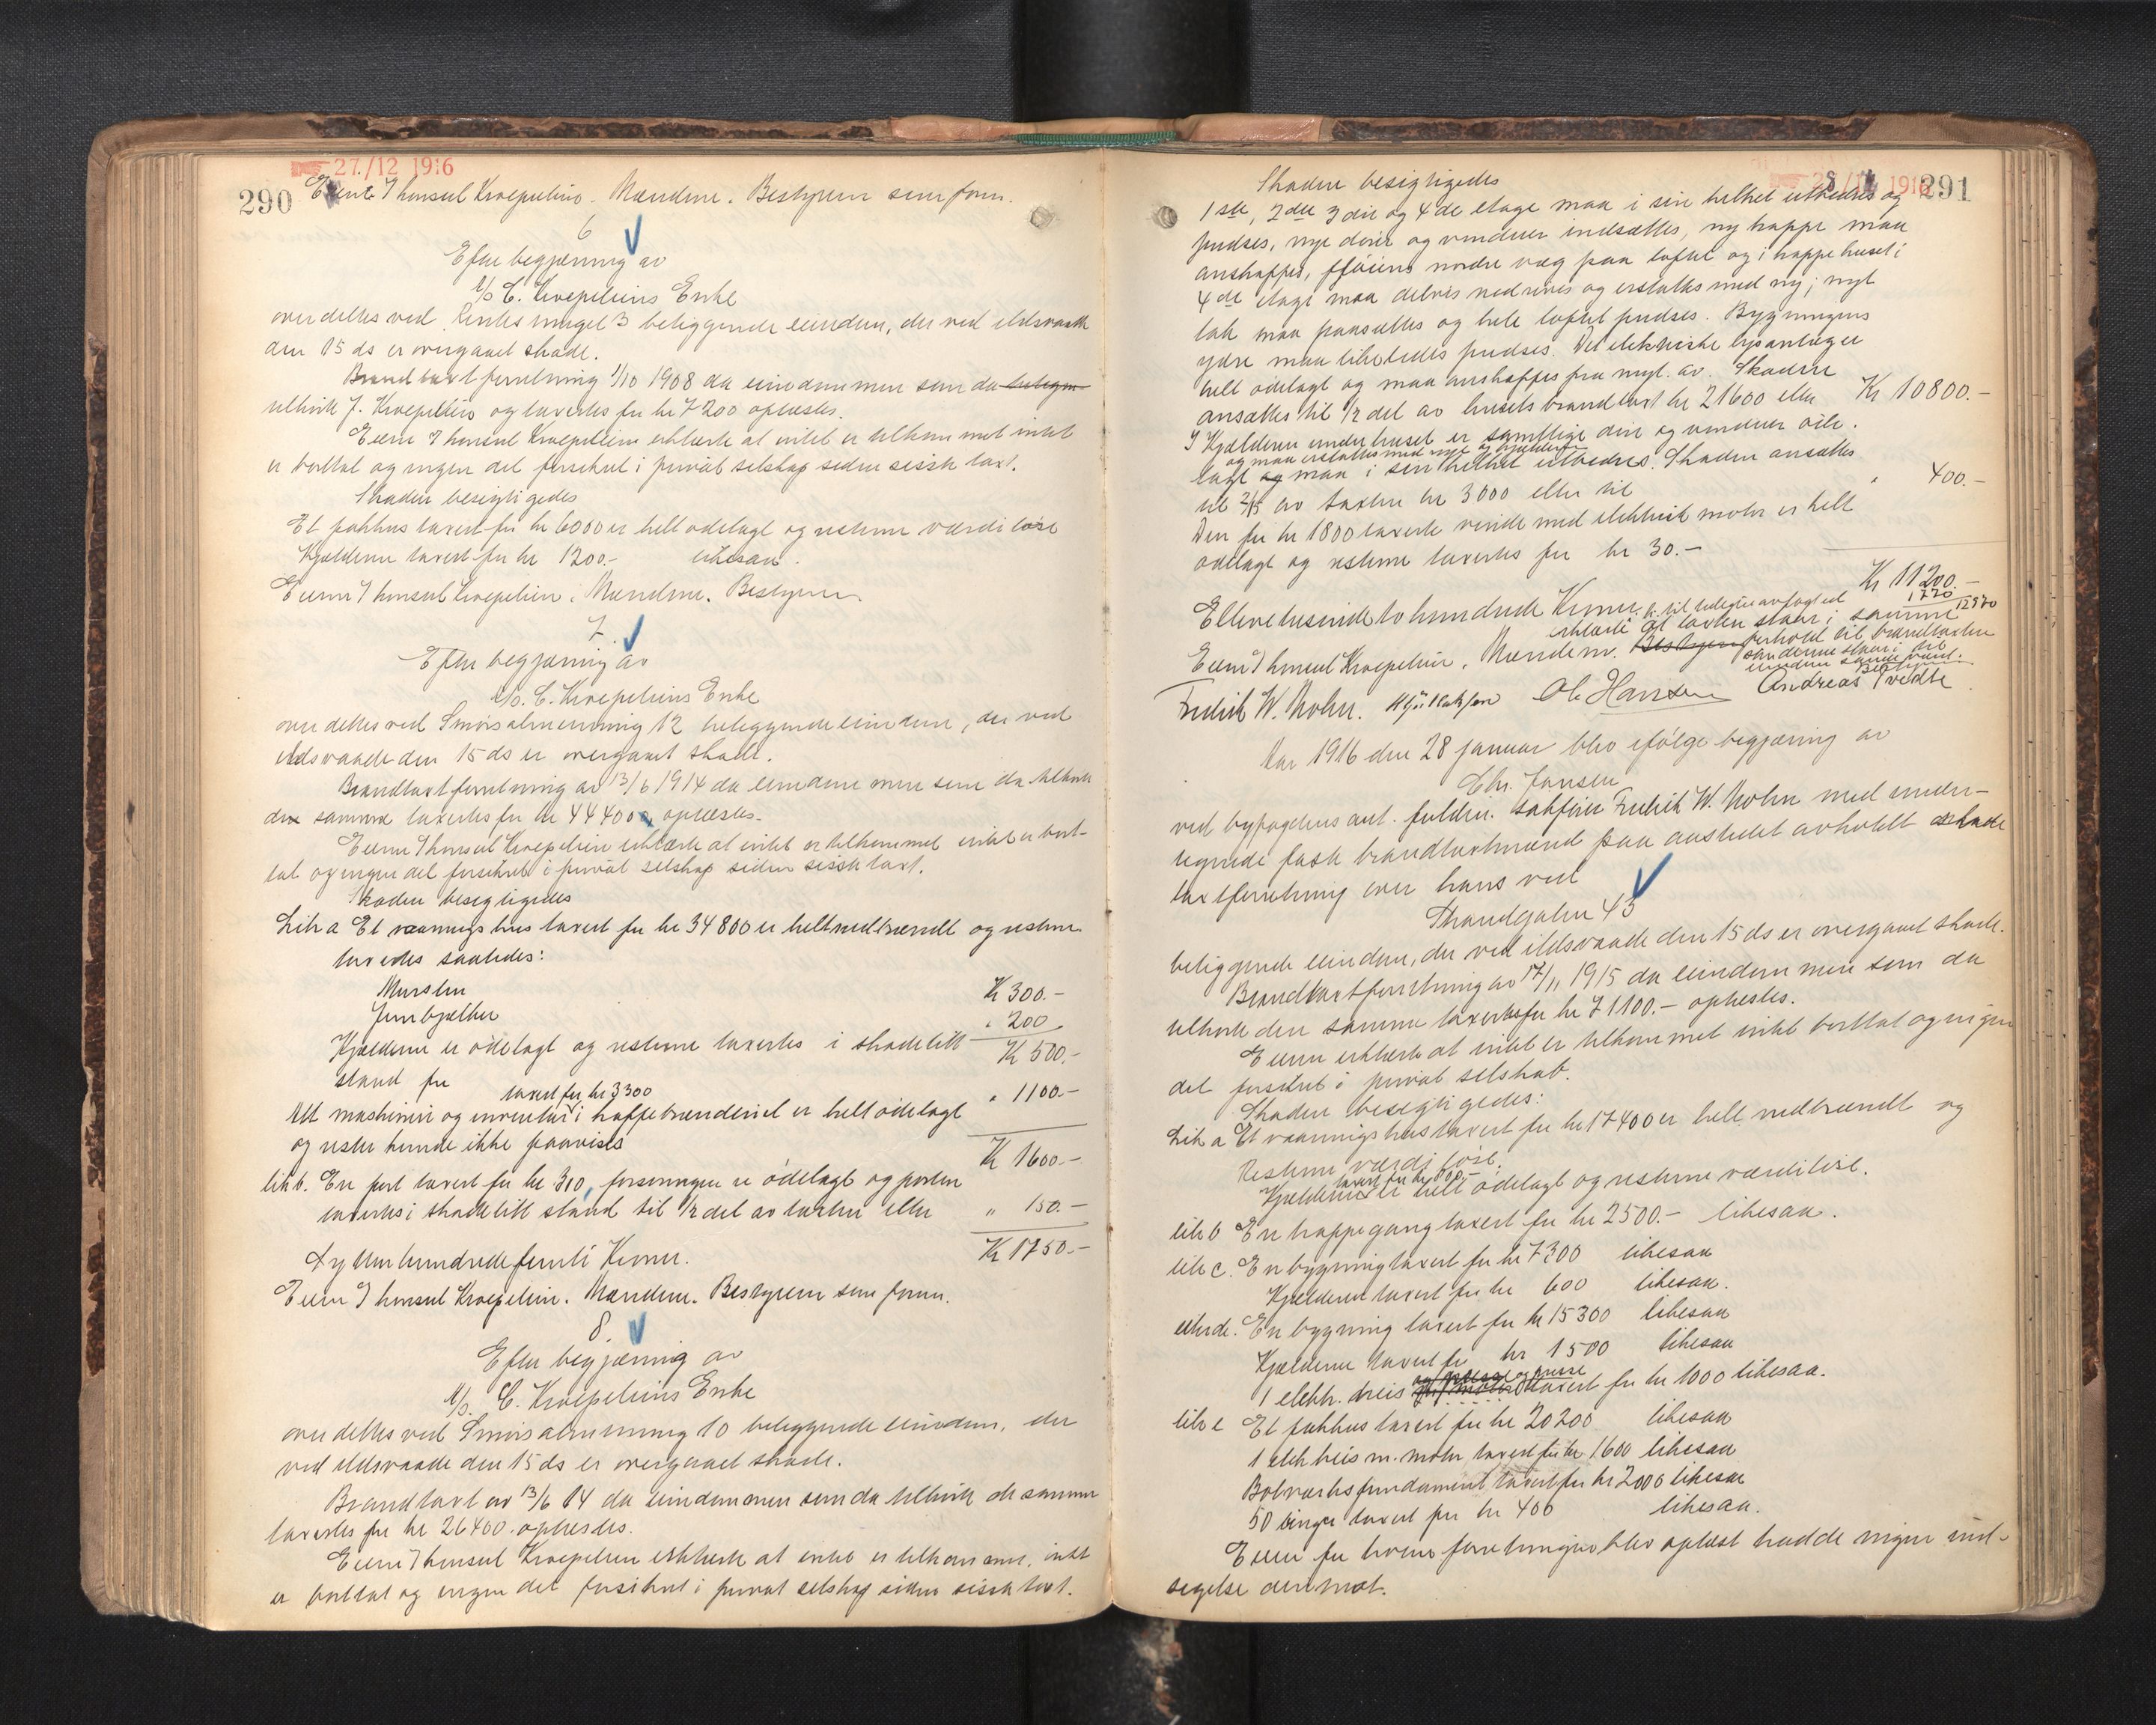 27/12 1916
290
Eiere I konsul Kroepelien. Mændene. Bestyreren som foran.
6
Efter begjæring av
A/S C. Kroepeliens Enke
over dettes ved smuget 3 beliggende eiendom, der ved ildsvaade
den 15 ds er overgaaet skade.
Brandtaxtforretning 1/10 1908 da eiendommen som da
tilhørte J. Kroepelien og taxertes for kr 7200 oplæstes.
Eieren I konsul Kroepelien erklærte at intet er tilkommet intet
er borttat og ingen del forsikret i privat selskap siden sisste taxt.
Skaden besigtigedes
Et pakhus taxert for kr 6000 er helt ødelagt og resterne værdiløse
Kjælderen taxert for kr 1200.- likesaa.
Eieren I konsul Kroepelien. Mændene. Bestyreren.
7.
Efter begjæring av
A/S. C. Kroepeliens Enke
over dettes ved Smørsalmenning 12 beliggende eiendom, der ved
ildsvaade den 15 ds er overgaaet skade.
Brandtaxtforretning av 13/6 1914 da eiendommen som da tilhørte
den samme taxertes for kr 44400 oplæstes.
Eieren I konsul Kroepelien erklærte at intet er tilkommet intet er bort-
tat og ingen del forsikret i privat selskap siden sisste taxt.
Skaden besigtigedes
Litr a Et vaaningshus taxert for kr 34800 er helt nedbrændt og resterne
taxertes saaledes:
Mursten Kr 300.-
Jernbjælker " 200
Kr 500.-
Kjælderen er ødelagt og resterne taxertes i skadelitt
stand for " 1100.-
taxert for kr 3300
Alt maskineri og inventar i kaffebrænderiet er helt ødelagt
og rester kunde ikke paavises
Kr 1600.-
litr b. En port taxert for kr 300, forsiringen er ødelagt og porten
taxertes i skadelitt stand til 1/2 del av taxten eller " 150.-
Kr 1750.-
Sytten hundrede femti Kroner.
Eieren I konsul Kroepelien. Mændene. Bestyreren som foran.
8.
Efter begjæring av
A/S. C. Kroepeliens Enke
over dettes ved Smørsalmenning 10 beliggende eiendom, der
ved ildsvaade den 15 ds er overgaaet skade.
Brandtaxt av 13/6 14 da eiendommen som da tilhørte de samme
taxertes for kr 26400. oplæstes.
Eieren I konsul Kroepelien erklærte at intet er tilkommet, intet
er borttat og ingen del forsikret i privat selskap siden sisste taxt.
291
Skaden besigtigedes
1ste, 2den 3die og 4de etage maa i sin helhet utbedres og
pudses, nye dører og vinduer indsættes, ny trappe maa
anskaffes, fløiens nordre væg paa loftet og i trappehuset i
4de etage maa delvis nedrives og erstattes med ny; nyt
tak maa paasættes og hele loftet pudses. Bygningens
ydre maa likeledes pudses. Det elektriske lysanlæg er
helt ødelagt og maa anskaffes fra nyt. av. Skaden
ansættes til 1/2 del av husets brandtaxt kr 21600 eller Kr 10800.-
I Kjælderen under huset er samtlige dører og vinduer øde-
og maa erstattes med nye og kjælderen
lagt og maa i sin helhet utbedres. Skaden ansættes
til 2/15 av taxten kr 3000 eller til " 400.-
Den for kr 1800 taxerte vinde med elektrisk motor er helt
ødelagt og resterne taxertes for kr 30.-
Kr 11200.-
1770
12970
Ellevetusindetohundrede Kroner.
Eieren I konsul Kroepelien. Mændene erklærte at taxten staar i samme
forhold til brandtaxten
Bestyreren
Fredrik W. Mohn. Ole Hansen Andreas Tvedte
Aar 1916 den 28 januar blev ifølge begjæring av
Chr. Jansen
ved byfogdens aut. fuldm. sakfører Fredrik W. Mohn med under-
tegnede faste brandtaxtmænd paa aastedet avholdt skade
taxtforretning over hans ved
Strandgaten 43
beliggende eiendom, der ved ildsvaade den 15 ds er overgaaet skade.
Brandtaxtforretning av 17/11 1915 da eiendommen som da
tilhørte den samme taxertes for kr 71100.- oplæstes.
Eieren erklærte at intet er tilkommet intet borttat og ingen
del forsikret i privat selskab.
Skaden besigtigedes:
Litr a Et vaaningshus taxert for kr 17400 er helt nedbrændt og
Resterne værdiløse.
Kjælderen er helt ødelagt og resterne værdiløse.
litr b En trappegang taxert for kr 2500.- likesaa.
litr c. En bygning taxert for kr 7300 likesaa
Kjælderen taxert for kr 600 likesaa.
litr d. En bygning taxert for kr 15300 likesaa
Kjælderen taxert for kr 1500 likesaa
1 elektr. heis taxert for kr 1000 likesaa.
litr e Et pakhus taxert for kr 20200 likesaa
1 elektr heis m. motor taxert for kr 1600 likesaa
Bolverksfundament taxert for kr 2000 likesaa
50 binger taxert for kr 400 likesaa.
Eieren for hvem forretningen blev oplæst hadde ingen ind-
sigelse derimot.